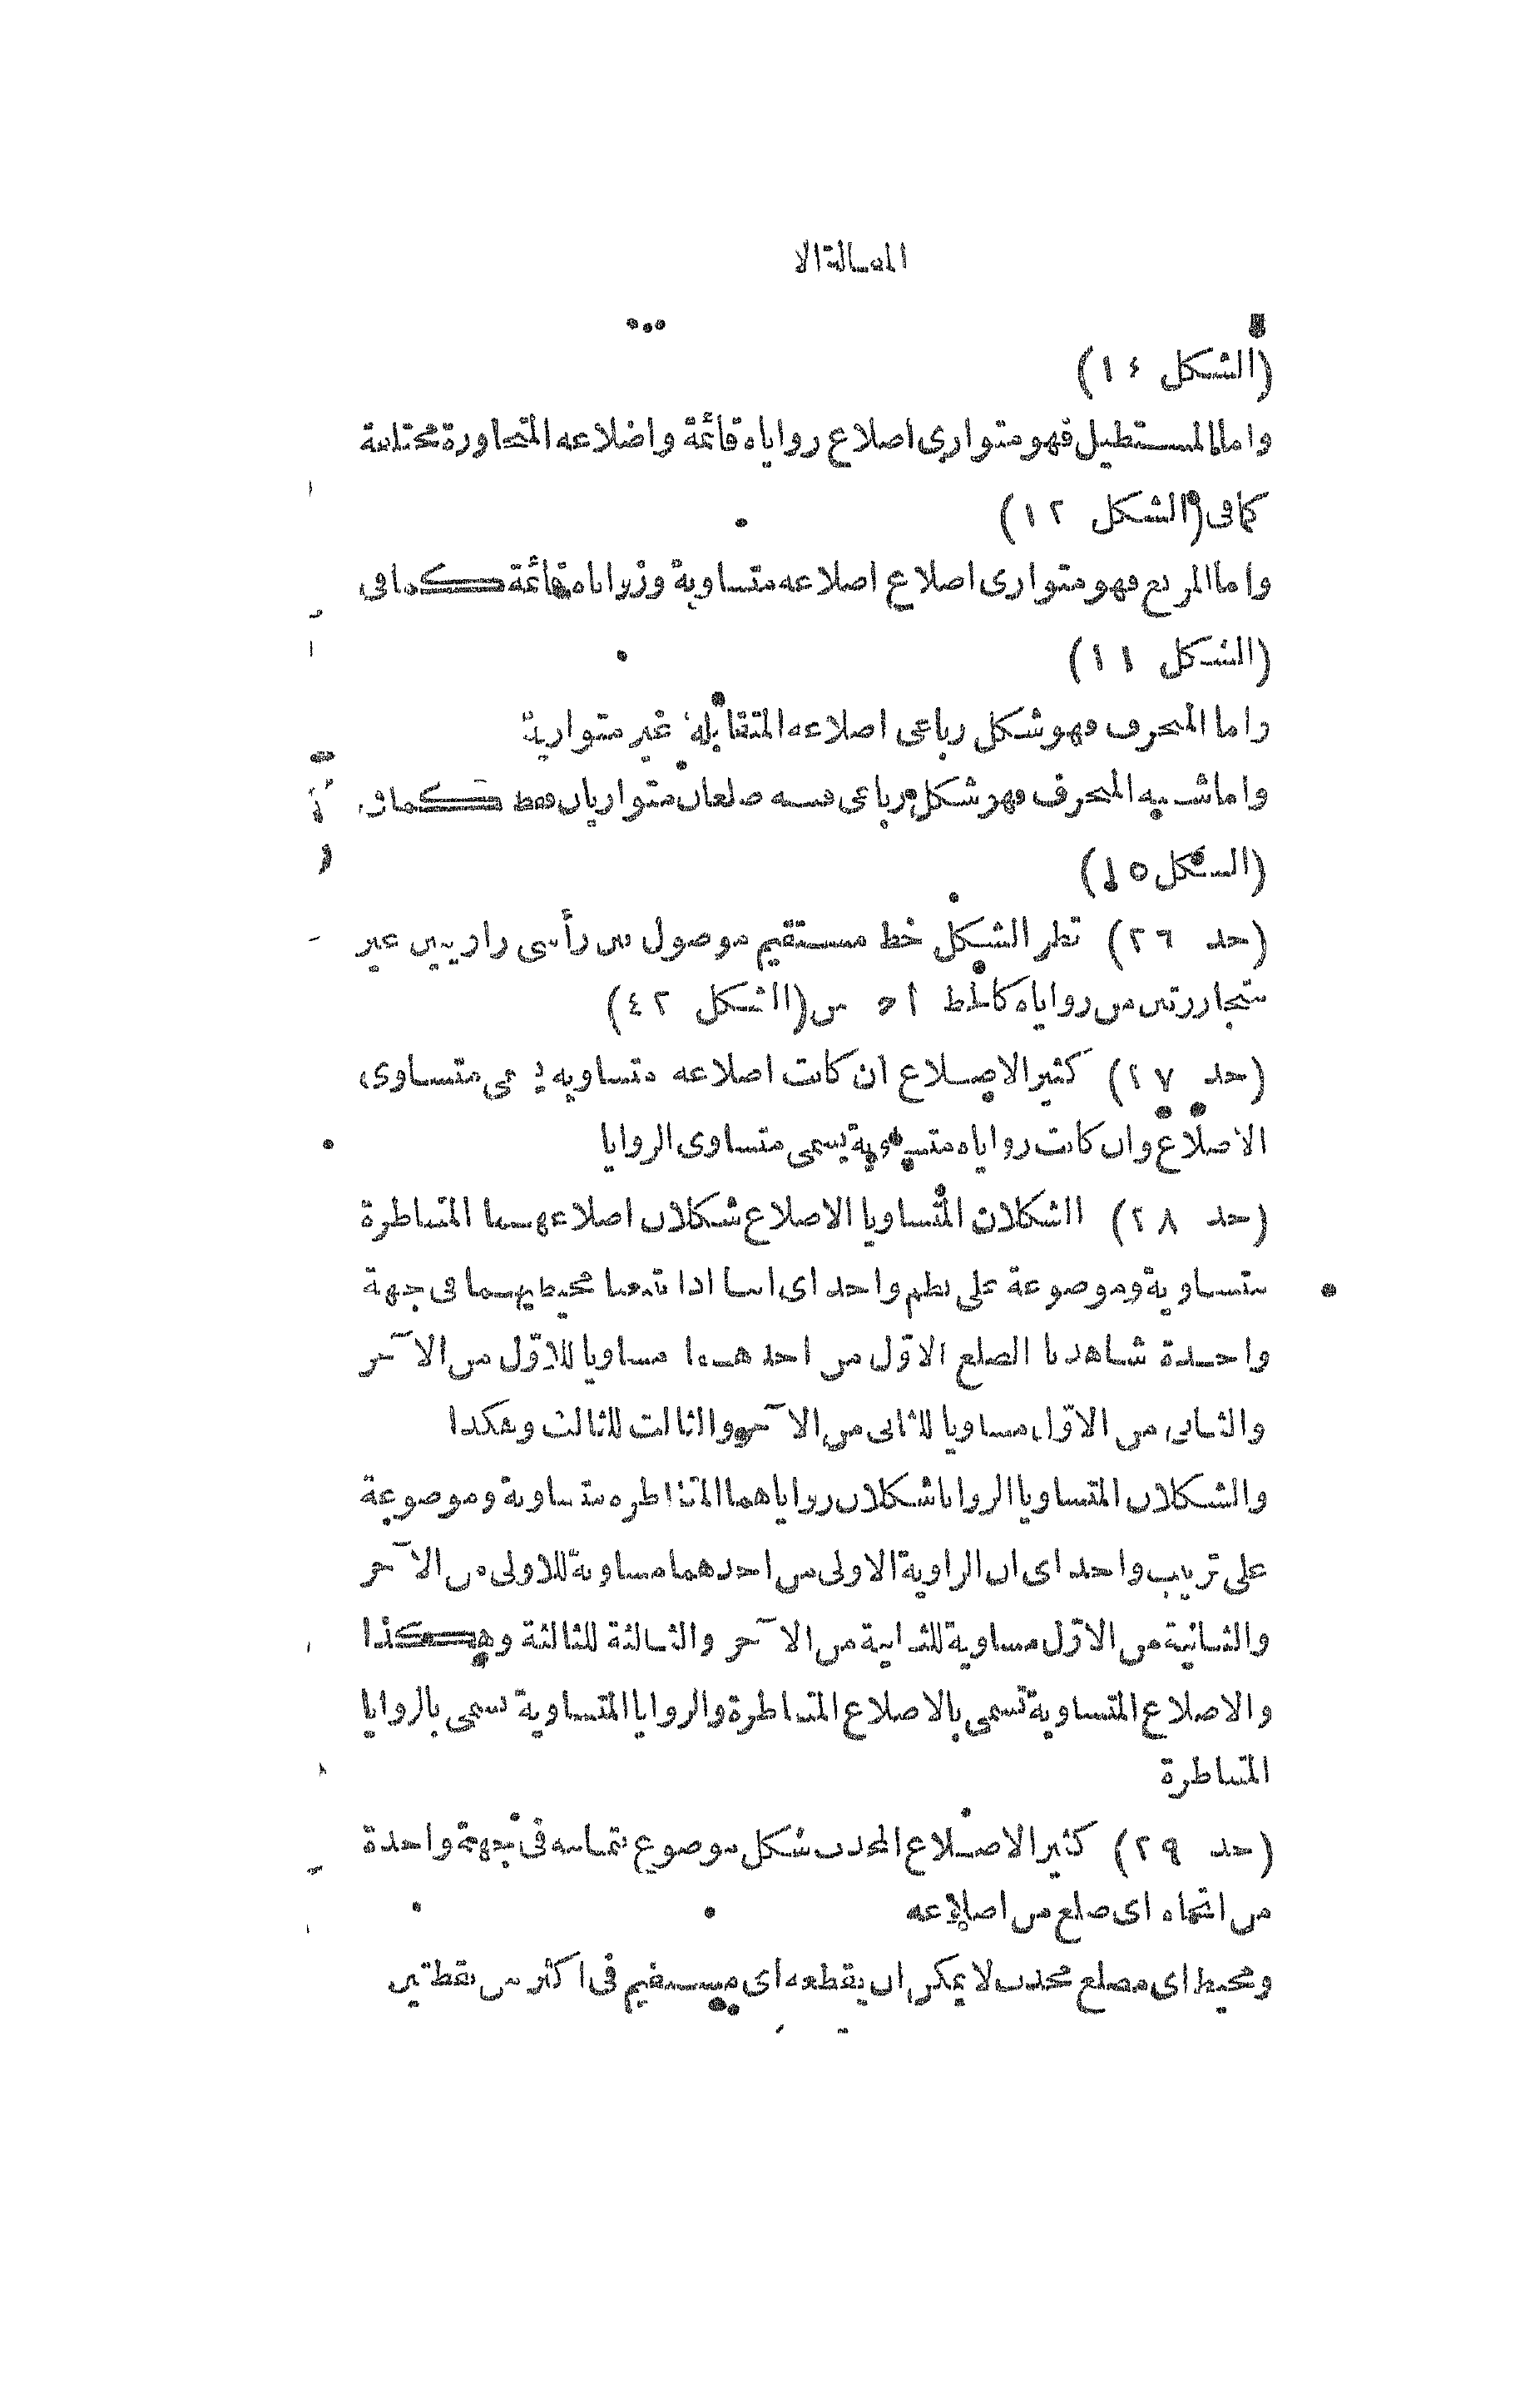 المقالة الا
(الشكل ١٤)
واما المستطيل فهو متوازى اضلاع زواياه قائمة واضلاعه المتجاورة مختلفة
كما فى (الشكل ١٢)
واما المربع فهو متوازى اضلاع اضلاعه متساوية وزواياه قائمة كما فى
(الشكل ١١)
واما المنحرف فهو شكل رباعى اضلاعه المتقابلة غير متوازية
واما شبيه المنحرف فهو شكل رباعى فيه ضلعان متوازيان فقط كما فى
(الشكل ١٥)
(حد ٢٦) قطر الشكل خط مستقيم موصول بين رأسى زاويتين غير
متجاورتين من زواياه كالخط ا ح من (الشكل ٤٢)
(حد ٢٧) كثير الاضلاع ان كانت اضلاعه متساويه يسمى متساوى
الاضلاع وان كانت زواياه متساوية يسمى متساوى الزوايا
(حد ٢٨) الشكلان المتساويا الاضلاع شكلان اضلاعهما المتناظرة
متساوية وموضوعة على نظم واحد اى اننا اذا تتبعنا محيطيهما فى جهة
واحدة شاهدنا الضلع الاوّل من احدهما مساويا للاوّل من الآخر
والثانى من الاوّل مساويا للثانى من الآخر والثالث للثالث وهكذا
والشكلان المتساويا الزوايا شكلان زواياهما المتناظره متساوية وموضوعة
على ترتيب واحد اى ان الزاوية الاولى من احدهما مساوية للاولى من الآخر
والثانية من الاوّل مساوية للثانية من الآخر والثالثة للثالثة وهكذا
والاضلاع المتساوية تسمى بالاضلاع المتناظرة والزوايا المتساوية تسمى بالزوايا
المتناظرة
(حد ٢٩) كثير الاضلاع المحدب شكل موضوع بتمامه فى جهة واحدة
من اتجاه اى ضلع من اضلاعه
ومحيط اى مضلع محدب لا يمكن ان يقطعه اى مستقيم فى اكثر من نقطتين